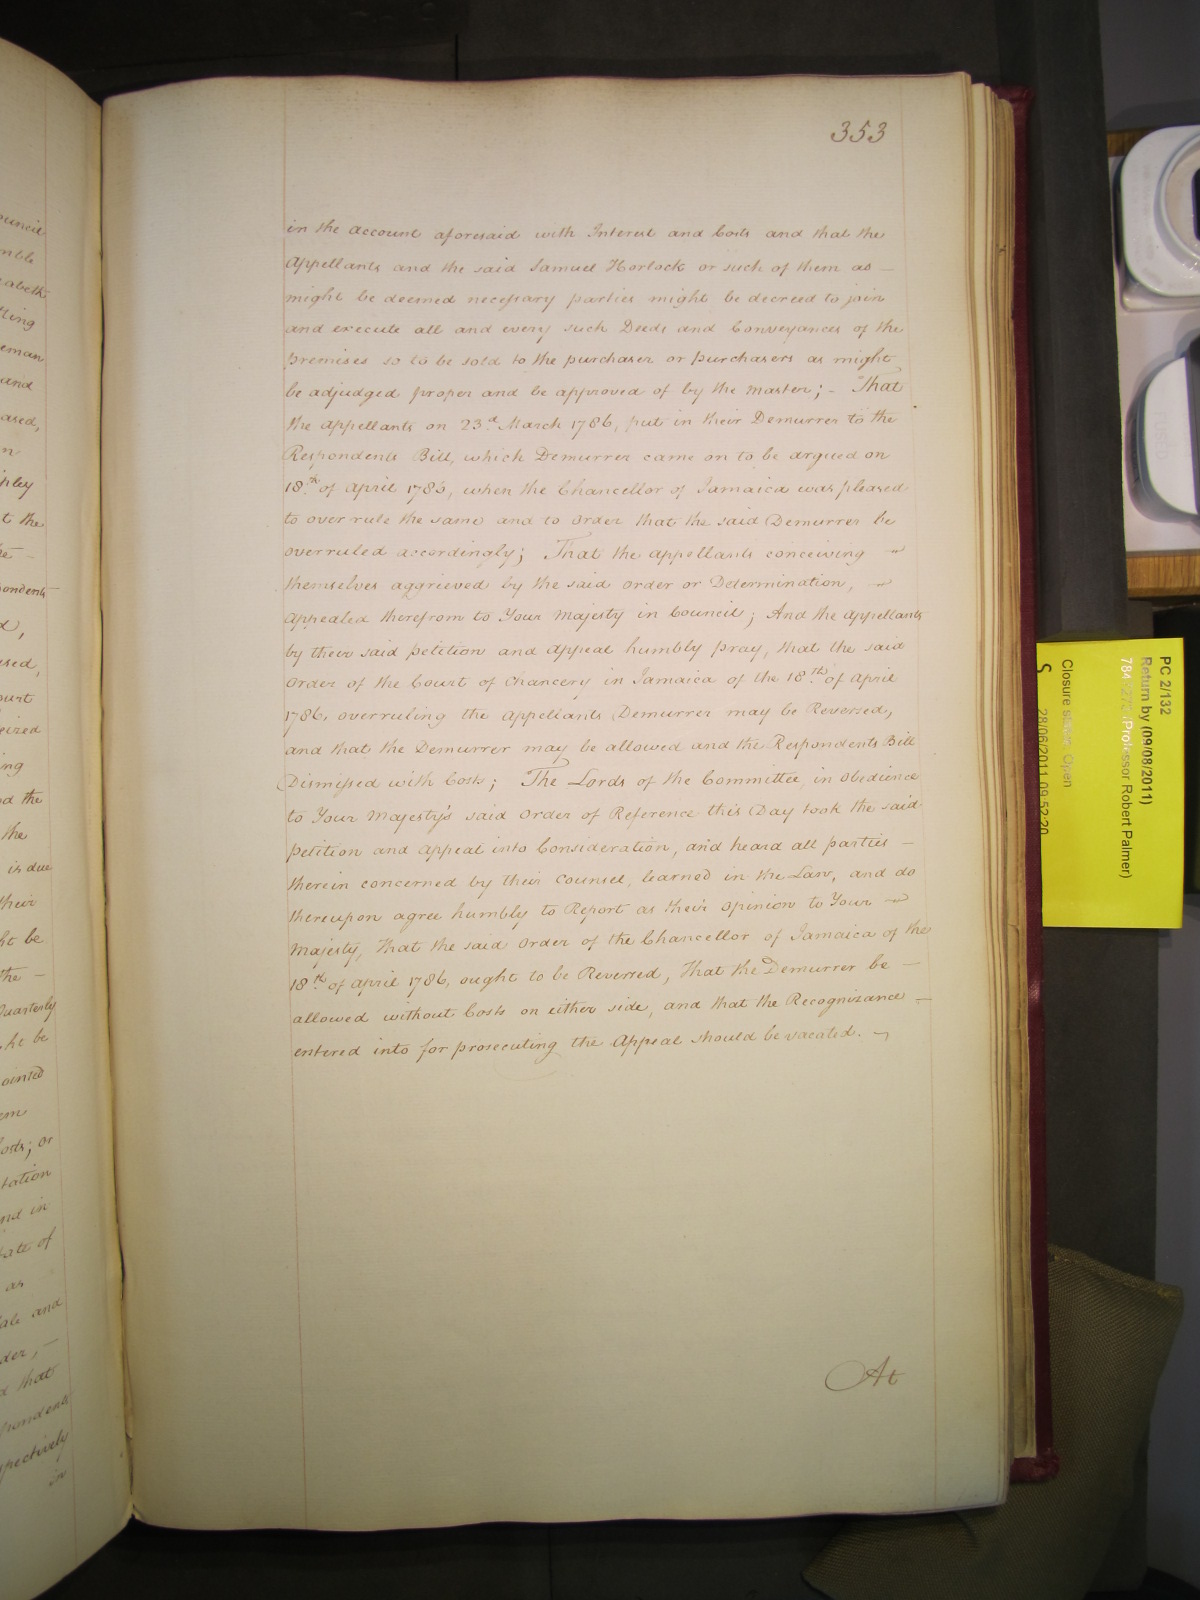 353
in the account aforesaid with Interest and Costs and that the
Appellants and the said Samuel Horlock or such of them as —
might be deemed necessary parties might be decreed to join
and execute all and every such Deeds and Conveyances of the
premises so to be sold to the purchaser or purchasers as might
be adjudged proper and be approved of by the Master; – That
the Appellants on 23.d March 1786, put in their Demurrer to the
Respondents Bill, which Demurrer came on to be argued on
18.th of April 1786, when the Chancellor of Jamaica was pleased
to over rule the same and to order that the said Demurrer be
overruled accordingly; That the Appellants conceiving —
themselves aggrieved by the said order or Determination, —
appealed therefrom to Your Majesty in Council; And the Appellants
by their said petition and Appeal humbly pray, that the said
Order of the Court of Chancery in Jamaica of the 18.th of April
1786, overruling the Appellants Demurrer may be Reversed,
and that the Demurrer may be allowed and the Respondents Bill
Dismissed with Costs; The Lords of the Committee, in obedience
to Your Majesty's said Order of Reference this Day took the said
petition and Appeal into Consideration, and heard all parties —
therein concerned by their Counsel, learned in the Law, and do
thereupon agree humbly to Report as their opinion to Your —
Majesty, That the said Order of the Chancellor of Jamaica of the
18.th of April 1786, ought to be Reversed, That the Demurrer be —
allowed without Costs on either side, and that the Recognizance —
entered into for prosecuting the Appeal should be vacated. –
At
ouncil
mble
abeth
tling
eman
and
ased,
n
pley
t the
he —
pondents
d,
ased,
ourt
eized
ing
nd the
the
is due
their
ht be
the —
Quarterly
ht be
ointed
em
osts; or
tation
nd in
tate of
as
ale and
der, —
d that
pondents
spectively
in
PC 2/132
Return by (09/08/2011)
Professor Robert Palmer)
Closure status: Open
28/06/2011 09:52:20
S